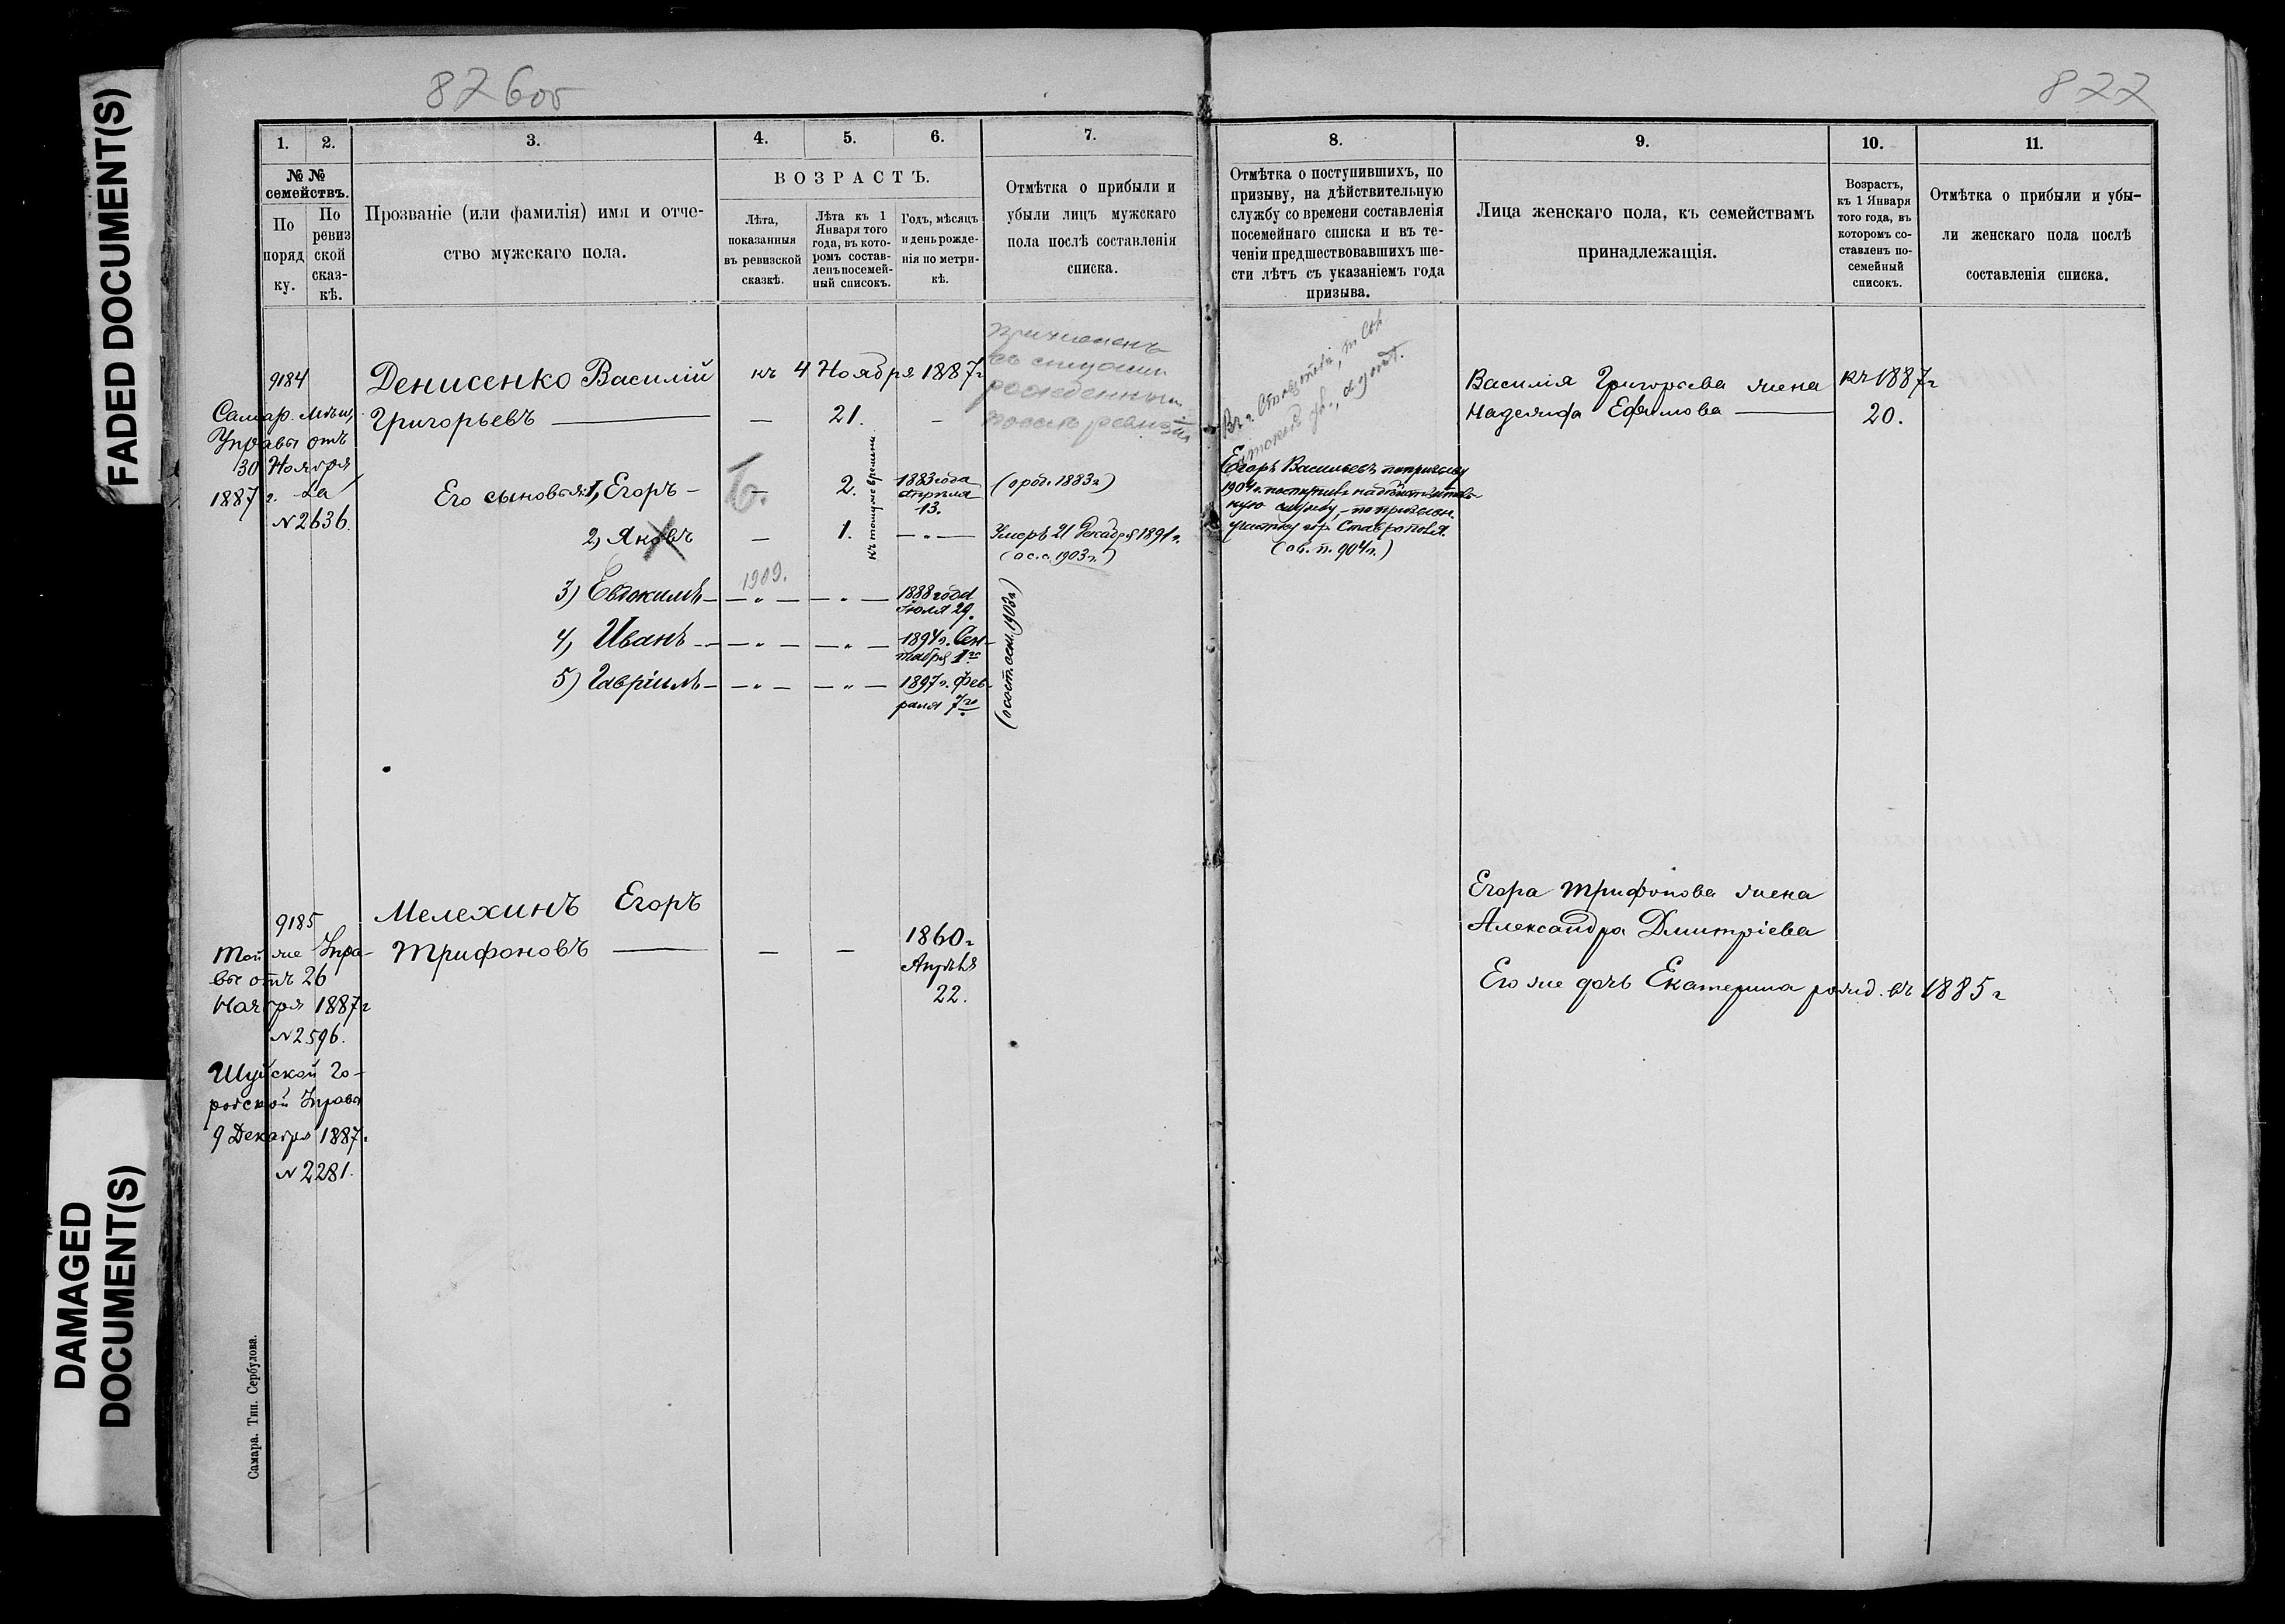 FADED DOCUMENT(S)
DAMAGED
DOCUMENT(S)
876об
877
1.
2.
3.
4.
5.
6.
7.
№ №
семействъ.
По
поряд
ку.
По
ревиз
ской
сказ-
кѣ.
Прозваніе (или фамилія) имя и отче-
ство мужскаго пола.
ВОЗРАСТЪ.
Лѣта,
показанныя
въ ревизской
сказкѣ.
Лѣта къ 1
Января того
года, въ кото-
ромъ состав-
ленъ посемей-
ный списокъ.
Годъ, мѣсяцъ
и день рожде-
нія по метри-
кѣ.
Отмѣтка о прибыли и
убыли лицъ мужскаго
пола послѣ составленія
списка.
9184
Самар. Мѣщ.
Управы отъ
30 Ноября
1887 г. За
№ 2636.
Денисенко Василій
Григорьевъ —
къ 4 Ноября 1887 г
— 21. —
причисленъ
рожденным
послѣ ревизіи
Его сыновья: 1, Егоръ –
Б.
— 2.
къ тому же времени
1883 года
Апрѣля
13.
(о род. 1883 г.)
2, Яковъ
— 1. — „ —
Умеръ 21 Декабря 1891 г.
(о с.с. 1903 г.)
3) Евдокимъ –
1909.
— „ — — „ —
1888 года
Іюля 29.
4, Иванъ –
— „ — — „ —
1894 г. Сен-
тября 1го
5) Гавріилъ –
— „ — — „ —
1897 г. Фев-
раля 7го
9185
Той же Упра-
вы отъ 26
Ноября 1887 г
№ 2596.
Шуйской Го-
родской Управы
9 Декабря 1887.
№ 2281.
Мелехинъ Егоръ
Трифоновъ —
— —
1860 г
Апрѣля
22.
Самара. Тип. Сербулова.
8.
9.
10.
11.
Отмѣтка о поступившихъ, по
призыву, на дѣйствительную
службу со времени составленія
посемейнаго списка и въ те-
ченіи предшествовавшихъ ше-
сти лѣтъ съ указаніемъ года
призыва.
Лица женскаго пола, къ семействамъ
принадлежащія.
Возрастъ,
къ 1 Января
того года, въ
которомъ со-
ставленъ по-
семейный
списокъ.
Отмѣтка о прибыли и убы-
ли женскаго пола послѣ
составленія списка.
Егоръ Васильевъ по призыву
1904 г. поступилъ на дѣйствитель-
ную службу, – по призывн.
участку гор. Ставрополя.
(об. п. 904 г.)
Василія Григорьева жена
Надежда Ефимова —
къ 1887 г
20.
Егора Трифонова жена
Александра Дмитріева
Его же дочь Екатерина рожд. въ 1885 г